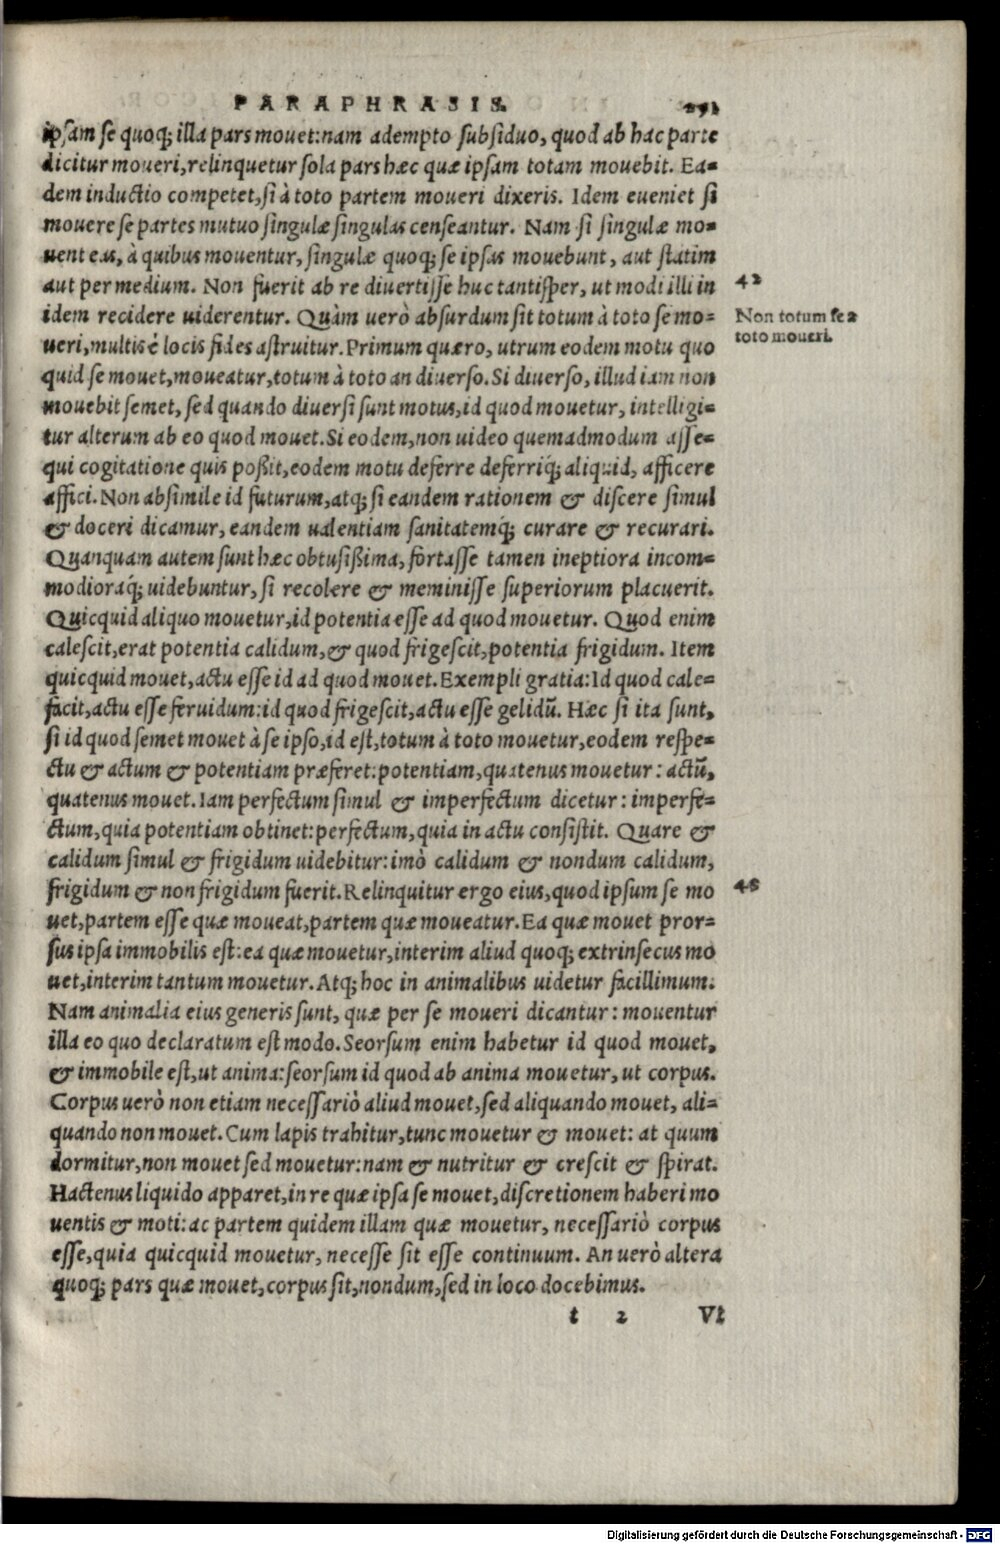 PARAPHRASIS. 291
ipsam se quoq; illa pars mouet: nam adempto subsiduo, quod ab hac parte
dicitur moueri, relinquetur sola pars hæc quæ ipsam totam mouebit. Ea-
dem inductio competet, si à toto partem moueri dixeris. Idem eueniet si
mouere se partes mutuo singulæ singulas censeantur. Nam si singulæ mo-
uent eas, à quibus mouentur, singulæ quoq; se ipsas mouebunt, aut statim
aut per medium. Non fuerit ab re diuertisse huc tantisper, ut modi illi in
42
idem recidere uiderentur. Quàm uerò absurdum sit totum à toto se mo-
Non totum se a
ueri, multis è locis fides astruitur. Primum quæro, utrum eodem motu quo
toto moueri.
quid se mouet, moueatur, totum à toto an diuerso. Si diuerso, illud iam non
mouebit semet, sed quando diuersi sunt motus, id quod mouetur, intelligi-
tur alterum ab eo quod mouet. Si eodem, non uideo quemadmodum asse-
qui cogitatione quis poßit, eodem motu deferre deferriq́; aliquid, afficere
affici. Non absimile id futurum, atq; si eandem rationem & discere simul
& doceri dicamur, eandem ualentiam sanitatemq́; curare & recurari.
Quanquam autem sunt hæc obtusißima, fortasse tamen ineptiora incom-
modioraq́; uidebuntur, si recolere & meminisse superiorum placuerit.
Quicquid aliquo mouetur, id potentia esse ad quod mouetur. Quod enim
calescit, erat potentia calidum, & quod frigescit, potentia frigidum. Item
quicquid mouet, actu esse id ad quod mouet. Exempli gratia: Id quod cale-
facit, actu esse feruidum: id quod frigescit, actu esse gelidũ. Hæc si ita sunt,
si id quod semet mouet à se ipso, id est, totum à toto mouetur, eodem respe-
ctu & actum & potentiam præferet: potentiam, quatenus mouetur: actũ,
quatenus mouet. Iam perfectum simul & imperfectum dicetur: imperfe-
ctum, quia potentiam obtinet: perfectum, quia in actu consistit. Quare &
calidum simul & frigidum uidebitur: imò calidum & nondum calidum,
frigidum & non frigidum fuerit. Relinquitur ergo eius, quod ipsum se mo
45
uet, partem esse quæ moueat, partem quæ moueatur. Ea quæ mouet pror-
sus ipsa immobilis est: ea quæ mouetur, interim aliud quoq; extrinsecus mo
uet, interim tantum mouetur. Atq; hoc in animalibus uidetur facillimum.
Nam animalia eius generis sunt, quæ per se moueri dicantur: mouentur
illa eo quo declaratum est modo. Seorsum enim habetur id quod mouet,
& immobile est, ut anima: seorsum id quod ab anima mouetur, ut corpus.
Corpus uerò non etiam necessariò aliud mouet, sed aliquando mouet, ali-
quando non mouet. Cum lapis trahitur, tunc mouetur & mouet: at quum
dormitur, non mouet sed mouetur: nam & nutritur & crescit & spirat.
Hactenus liquido apparet, in re quæ ipsa se mouet, discretionem haberi mo
uentis & moti: ac partem quidem illam quæ mouetur, necessariò corpus
esse, quia quicquid mouetur, necesse sit esse continuum. An uerò altera
quoq; pars quæ mouet, corpus sit, nondum, sed in loco docebimus.
t 2 Vt
Digitalisierung gefördert durch die Deutsche Forschungsgemeinschaft - DFG